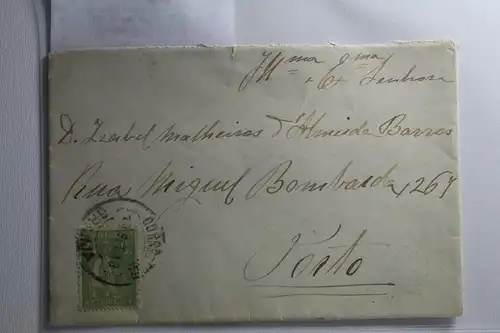 Illma e Exma Senhora
D. Izabel Malheiros d'Almeida Barros
Rua Miguel Bombarda, 267
Porto